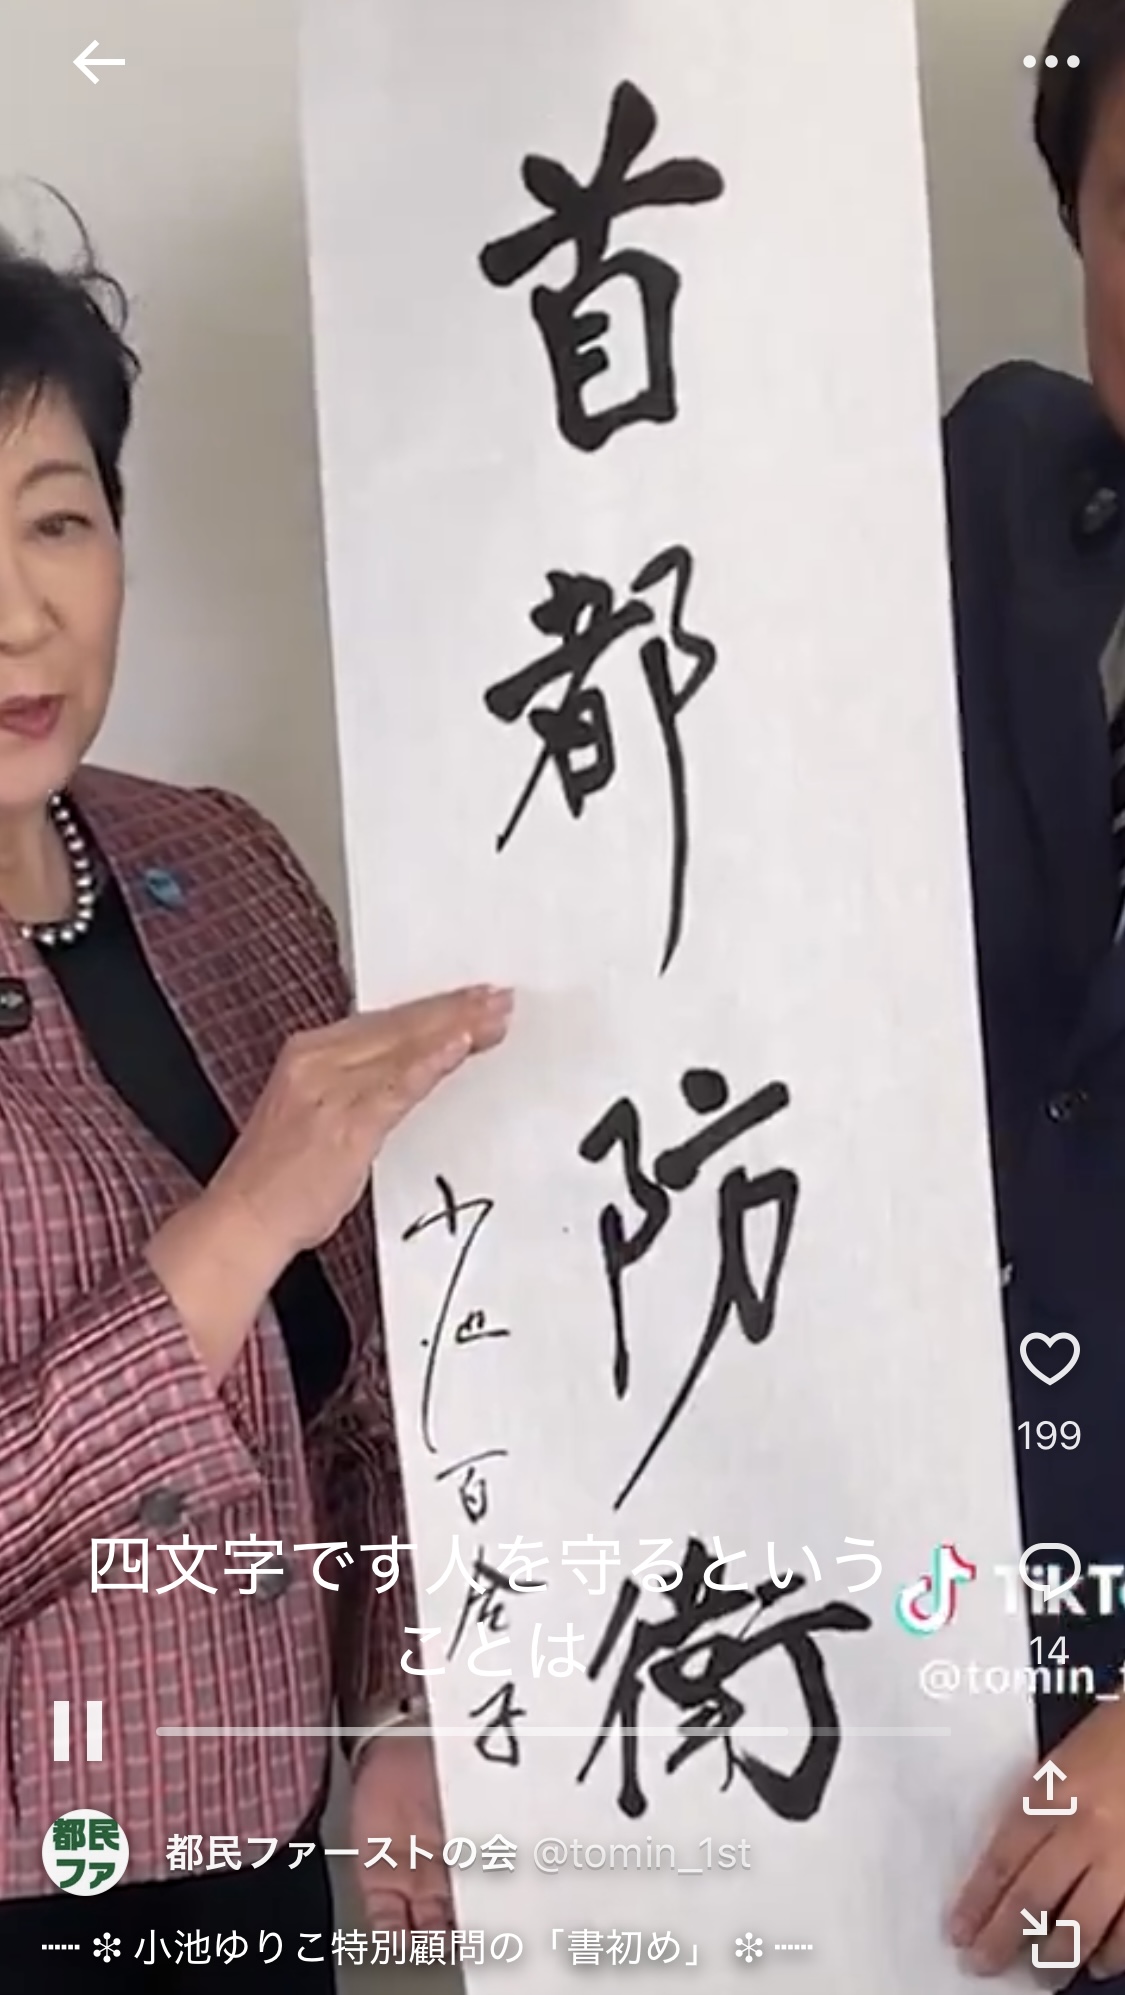 首都防衛
小池百合子
四文字です人を守るという
ことは
TikT
@tomin_
199
14
都民ファーストの会 @tomin_1st
都民
ファ
┈┈ ❇ 小池ゆりこ特別顧問の「書初め」 ❇ ┈┈